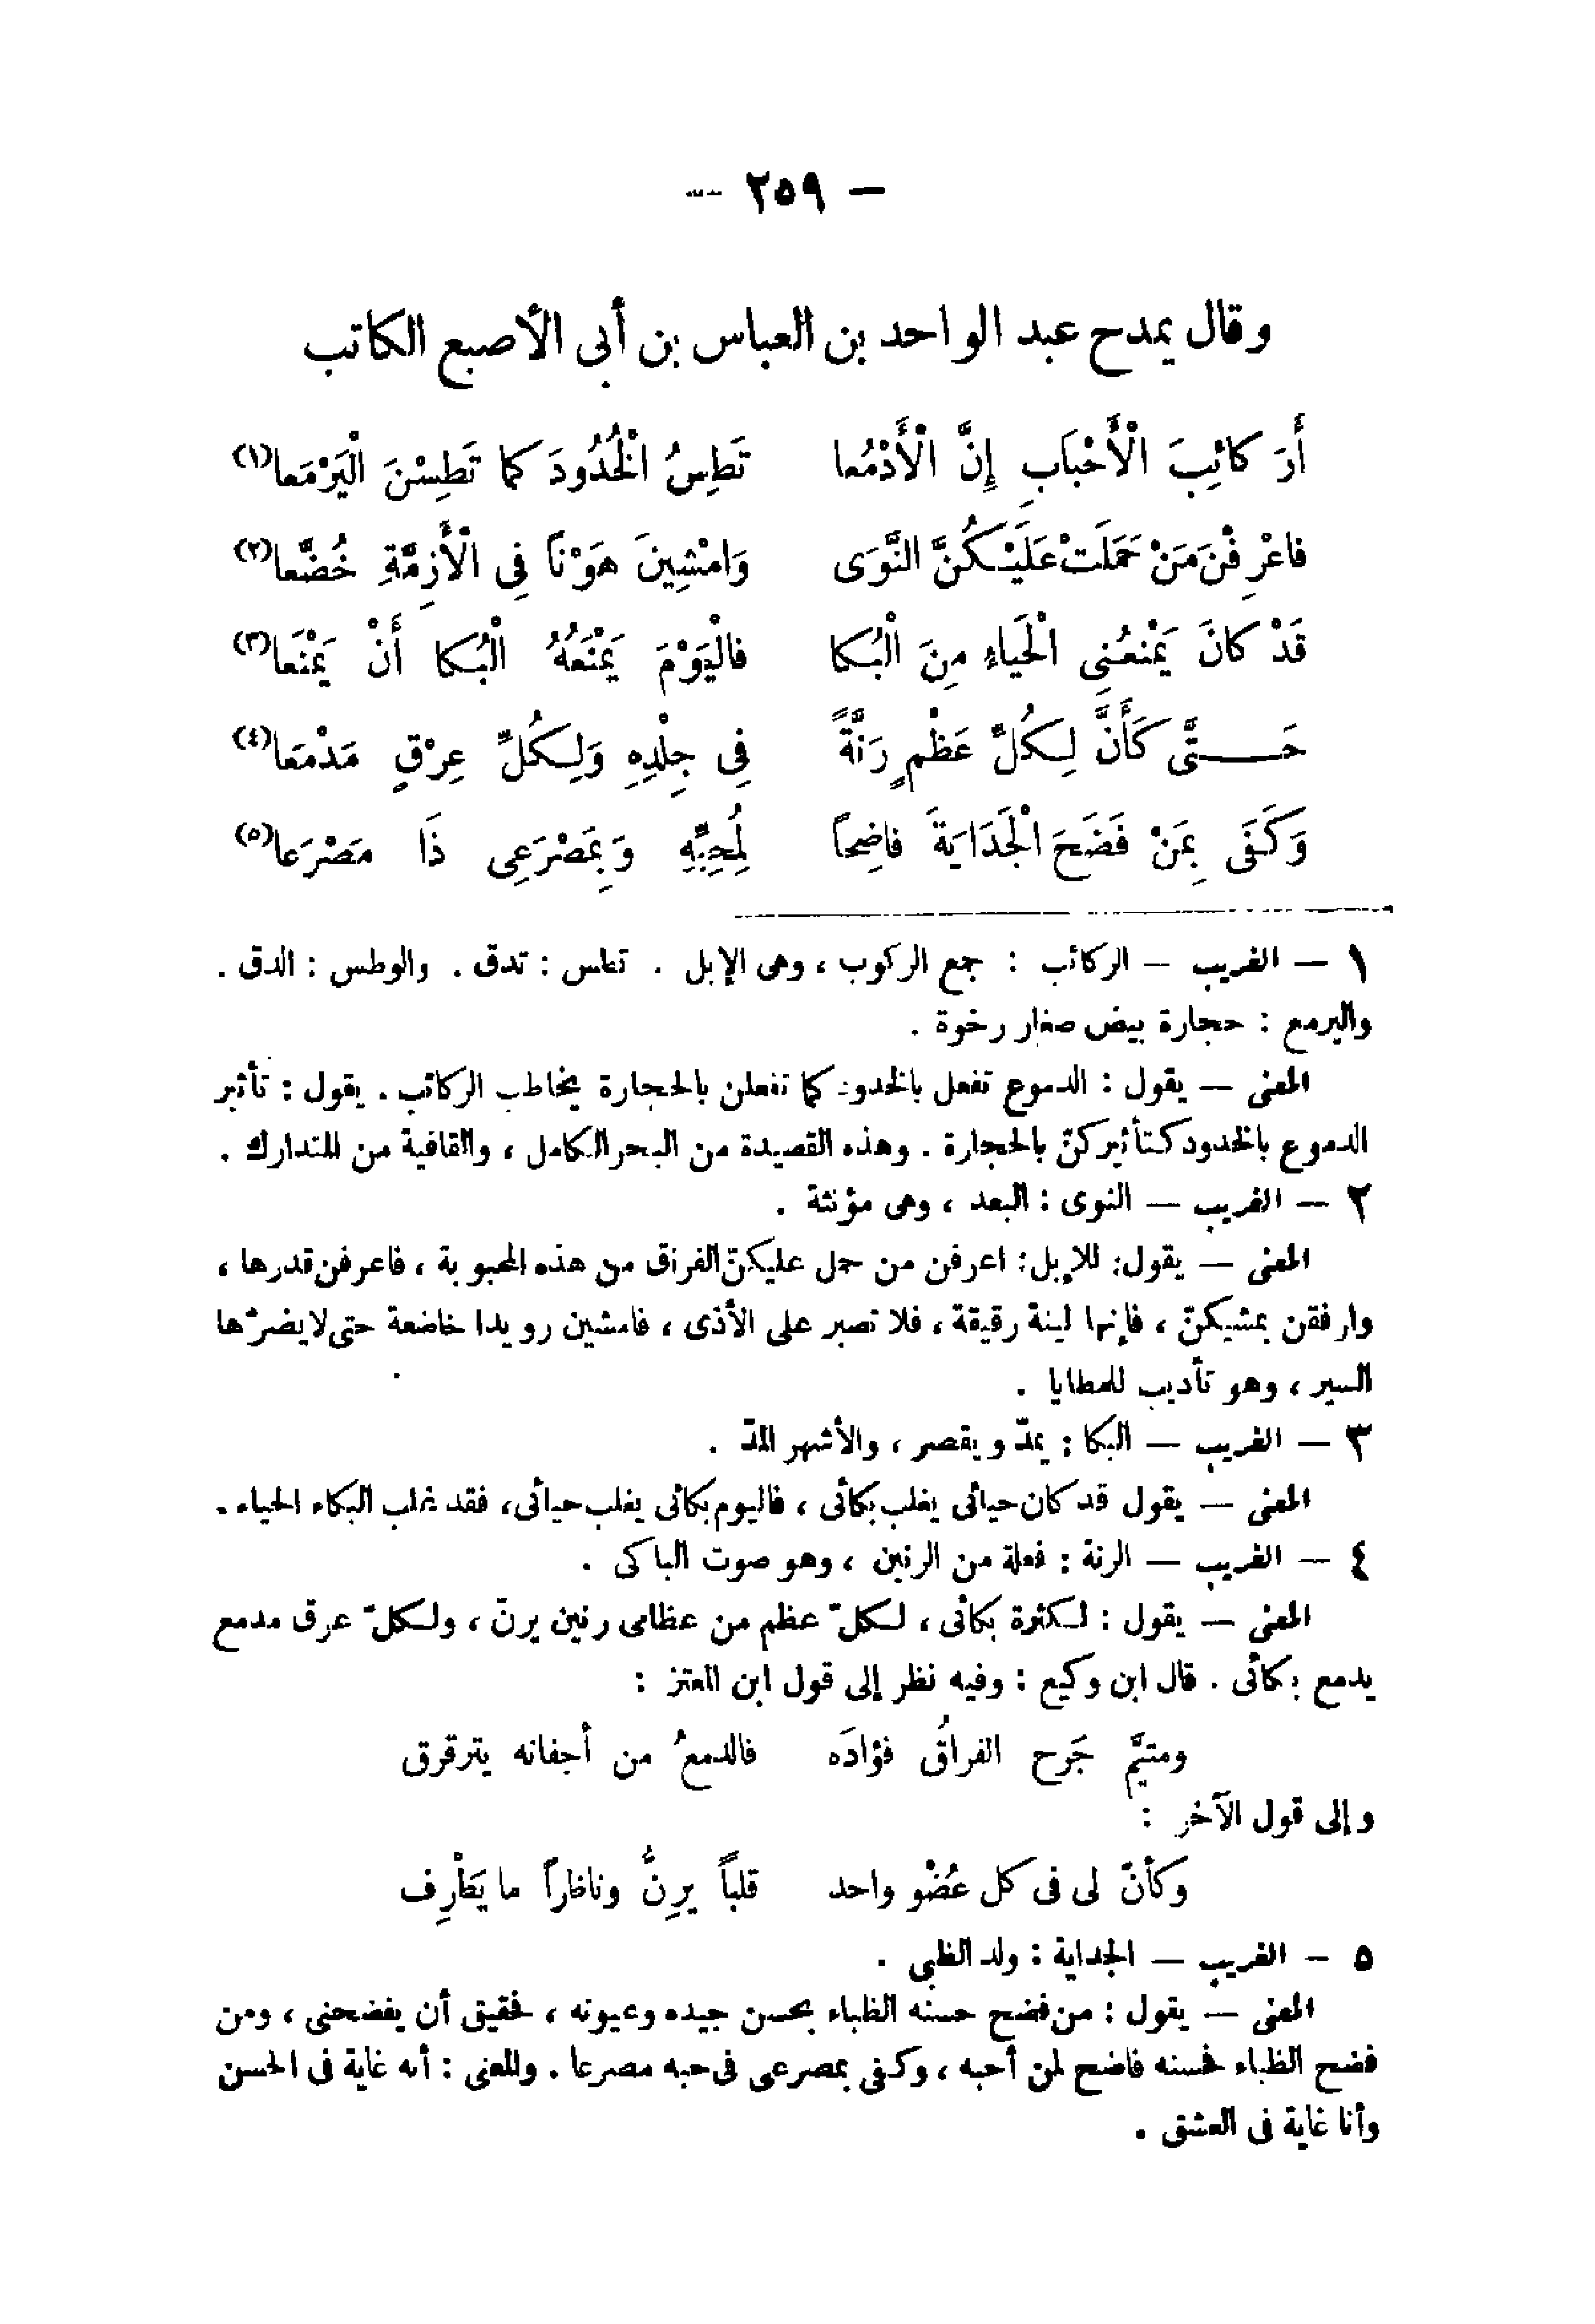 — ٢٥٩ —
وقال يمدح عبد الواحد بن العباس بن أبى الأصبع الكاتب
أَرَكائِبَ الْأَحْبَابِ إِنَّ الْأَدْمُعا تَطِسُ الْخُدُودَ كما تَطِسْنَ الْيَرْمَعا(١)
فاعْرِفْنَ مَنْ حَمَلَتْ عَلَيْكُنَّ النَّوَى وَامْشِينَ هَوْنًا فِى الْأَزِمَّةِ خُضَّعا(٢)
قَدْ كانَ يَمْنَعُنِى الْحَياءِ مِنَ الْبُكا فالْيَوْمَ يَمْنَعُهُ الْبُكا أَنْ يَمْنَعا(٣)
حَتَّى كَأَنَّ لِكُلِّ عَظْمٍ رَنَّةً فِى جِلْدِهِ وَلِكُلِّ عِرْقٍ مَدْمَعَا(٤)
وَكَفَى بِمَنْ فَضَحَ الْجَدَايَةَ فاضِحاً لِمُحِبِّهِ وَبِمَصْرَعِى ذَا مَصْرَعا(٥)
١ — الغريب — الركائب : جمع الركوب ، وهى الإبل . تطس : تدق . والوطس : الدق .
واليرمع : حجارة بيض صغار رخوة .
المعنى — يقول : الدموع تفعل بالخدود كما تفعلن بالحجارة يخاطب الركائب . يقول : تأثير
الدموع بالخدود كتأثيركنّ بالحجارة . وهذه القصيدة من البحر الكامل ، والقافية من المتدارك .
٢ — الغريب — النوى : البعد ، وهى مؤنثة .
المعنى — يقول : للإبل : اعرفن من حمل عليكنّ الفراق من هذه المحبوبة ، فاعرفن قدرها ،
وارفقن بمشيكنّ ، فإنها لينة رقيقة ، فلا تصبر على الأذى ، فامشين رويدا خاضعة حتى لا يضرّها
السير ، وهو تأديب للمطايا .
٣ — الغريب — البكا : يمدّ ويقصر ، والأشهر المدّ .
المعنى — يقول قد كان حيائى يغلب بكائى ، فاليوم بكائى يغلب حيائى ، فقد غلب البكاء الحياء .
٤ — الغريب — الرنة : فعلة من الرنين ، وهو صوت الباكى .
المعنى — يقول : لكثرة بكائى ، لكلّ عظم من عظامى رنين يرنّ ، ولكلّ عرق مدمع
يدمع بكائى . قال ابن وكيع : وفيه نظر إلى قول ابن المعتز :
ومتيَّم جَرح الفراقُ فؤادَه فالدمعُ من أجفانه يترقرق
وإلى قول الآخر :
وكأنّ لى فى كل عُضْو واحد قلباً يرِنُّ وناظراً ما يَطْرِف
٥ — الغريب — الجداية : ولد الظبى .
المعنى — يقول : من فضح حسنه الظباء بحسن جيده وعيونه ، فحقيق أن يفضحنى ، ومن
فضح الظباء فحسنه فاضح لمن أحبه ، وكفى بمصرعى فى حبه مصرعا . والمعنى : أنه غاية فى الحسن
وأنا غاية فى العشق .